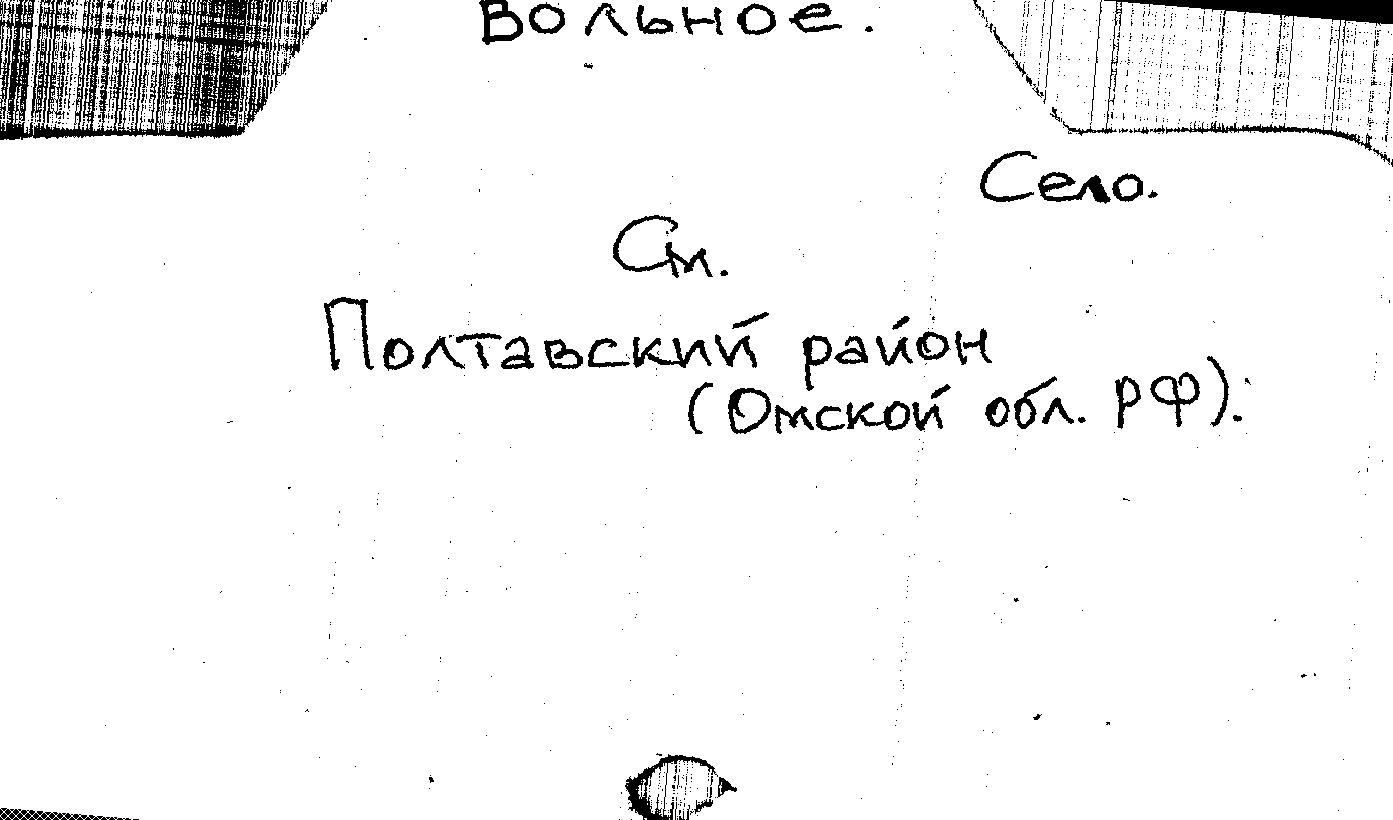 Вольное.
Село.
См.
Полтавский район
(Омской обл. РФ).